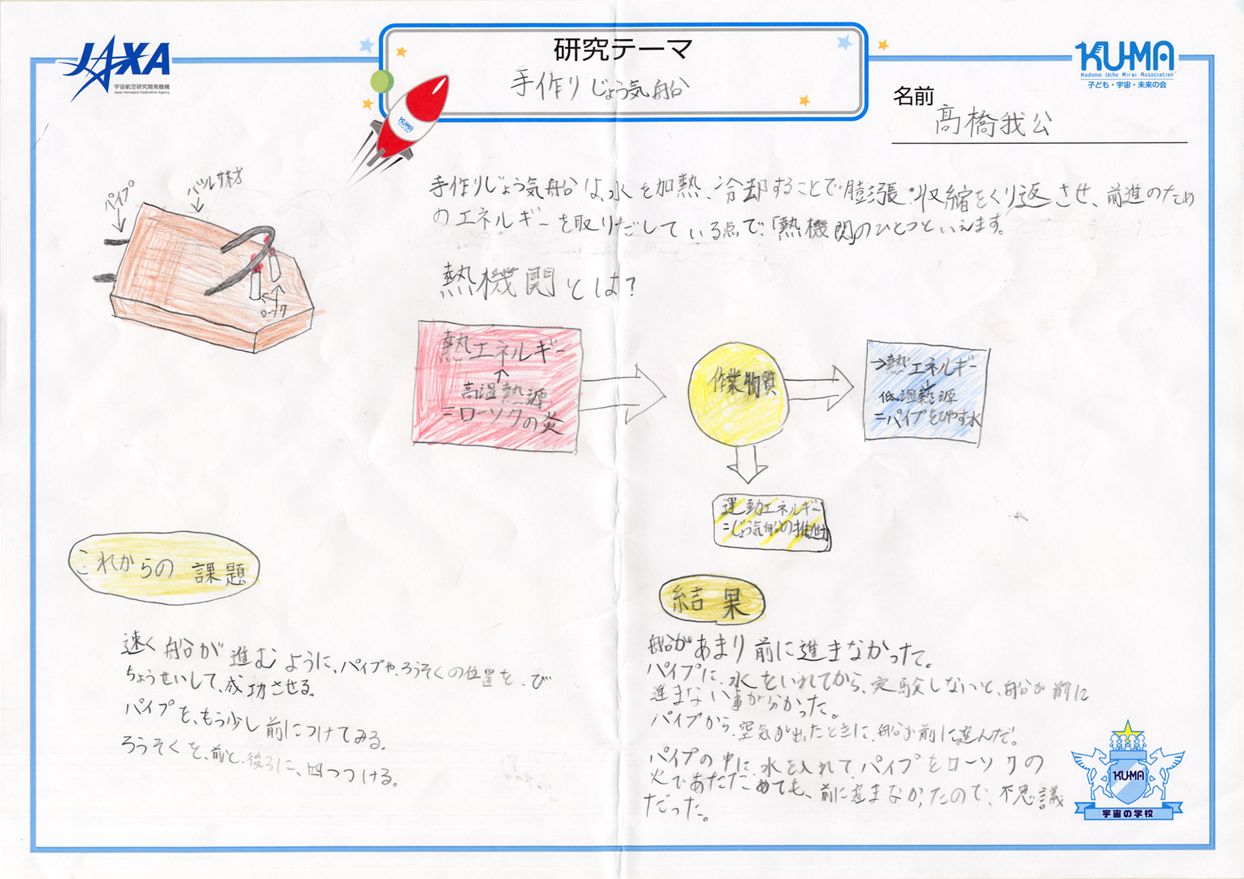 JAXA
宇宙航空研究開発機構
Japan Aerospace Exploration Agency
研究テーマ
手作りじょう気船
KUMA
KUMA
Kodomo Uchu Mirai Association
子ども・宇宙・未来の会
名前
髙橋我公
パイプ
バルサ材
ローソク
手作りじょう気船は、水を加熱、冷却することで膨張・収縮をくり返させ、前進のため
のエネルギーを取りだしている点で、「熱機関」のひとつといえます。
熱機関とは?
熱エネルギー
↑
高温熱源
=ローソクの炎
作業物質
→熱エネルギー
低温熱源
=パイプをひやす水
運動エネルギー
=じょう気船の推進力
これからの課題
速く船が進むように、パイプや、ろうそくの位置を、び
ちょうせいして、成功させる。
パイプを、もう少し前につけてみる。
ろうそくを、前と、後ろに、四つつける。
結果
船があまり前に進まなかった。
パイプに、水をいれてから、実験しないと、船が前に
進まない事が分かった。
パイプから、空気が出たときに、船が前に進んだ。
パイプの中に、水を入れて、パイプをローソクの
火であたためても、前に進まなかったので、不思議
だった。
KUMA
宇宙の学校